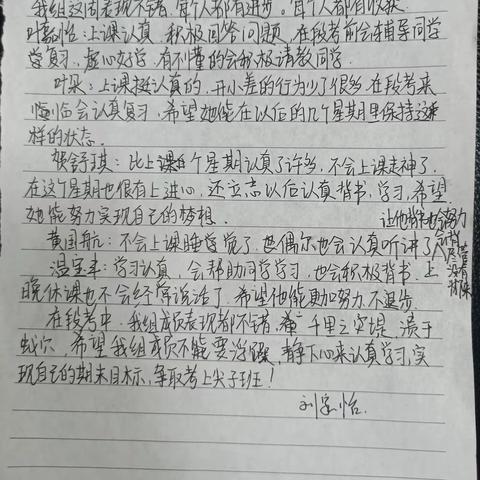 我组这周表现不错,每个人都有进步。每个人都有收获
怡:上课认真,积极回答问题,在段考前会辅导同学
学复习,虚心好学,有不懂的会积极请教同学.
叶朵:上课挺认真的,开小差的行为少了很多,在段考来
临临会认真复习,希望她能在以后的几个星期里保持这
样的状态.
贺舒琪:比上课的个星期认真了许多,不会上课走神了.
在这个星期也很有上进心,还立志以后认真背书,学习,希望
她能努力实现自己的梦想.
黄国航:不会上课睡学觉了.也偶尔也会认真听讲了
让他背书也会努力
会背
尽管
没有
背来
温宝丰:学习认真,会帮助同学学习,也会积极背书,上
晚休课也不会经常说话了,希望他能更加努力,不退步.
在段考中,我组成员表现都不错,千里之堤,溃于
蚁穴,希望我组成员不能要浮躁,静下心来认真学习,实
现自己的期末目标,争取考上尖子班!
刘怡.